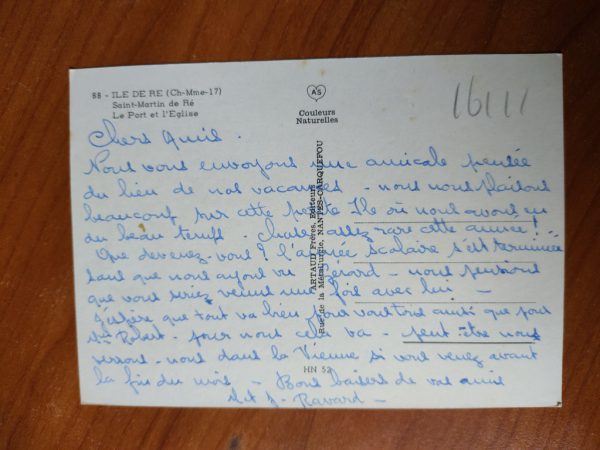 88 - ILE DE RE (Ch-Mme-17)
Saint-Martin de Ré
Le Port et l'Eglise
AS
Couleurs
Naturelles
16111
ARTAUD Frères, Editeurs
Rue de la Métallurgie, NANTES-CARQUEFOU
HN 52
Chers Amis.
Nous vous envoyons une amicale pensée
du lieu de nos vacances - nous nous plaisons
beaucoup sur cette petite Ile où nous avons eu
du beau temps. Chose assez rare cette année!
Que devenez-vous? l'année scolaire s'est terminée
sans que nous ayons vu Gérard - nous pensions
que vous seriez venus une fois avec lui -
J'espère que tout va bien pour vous tous ainsi que pour
Mme Robert - pour nous cela va - peut-être nous
verrons-nous dans la Vienne si vous venez avant
la fin du mois. - Bons baisers de vos amis
Ravard -